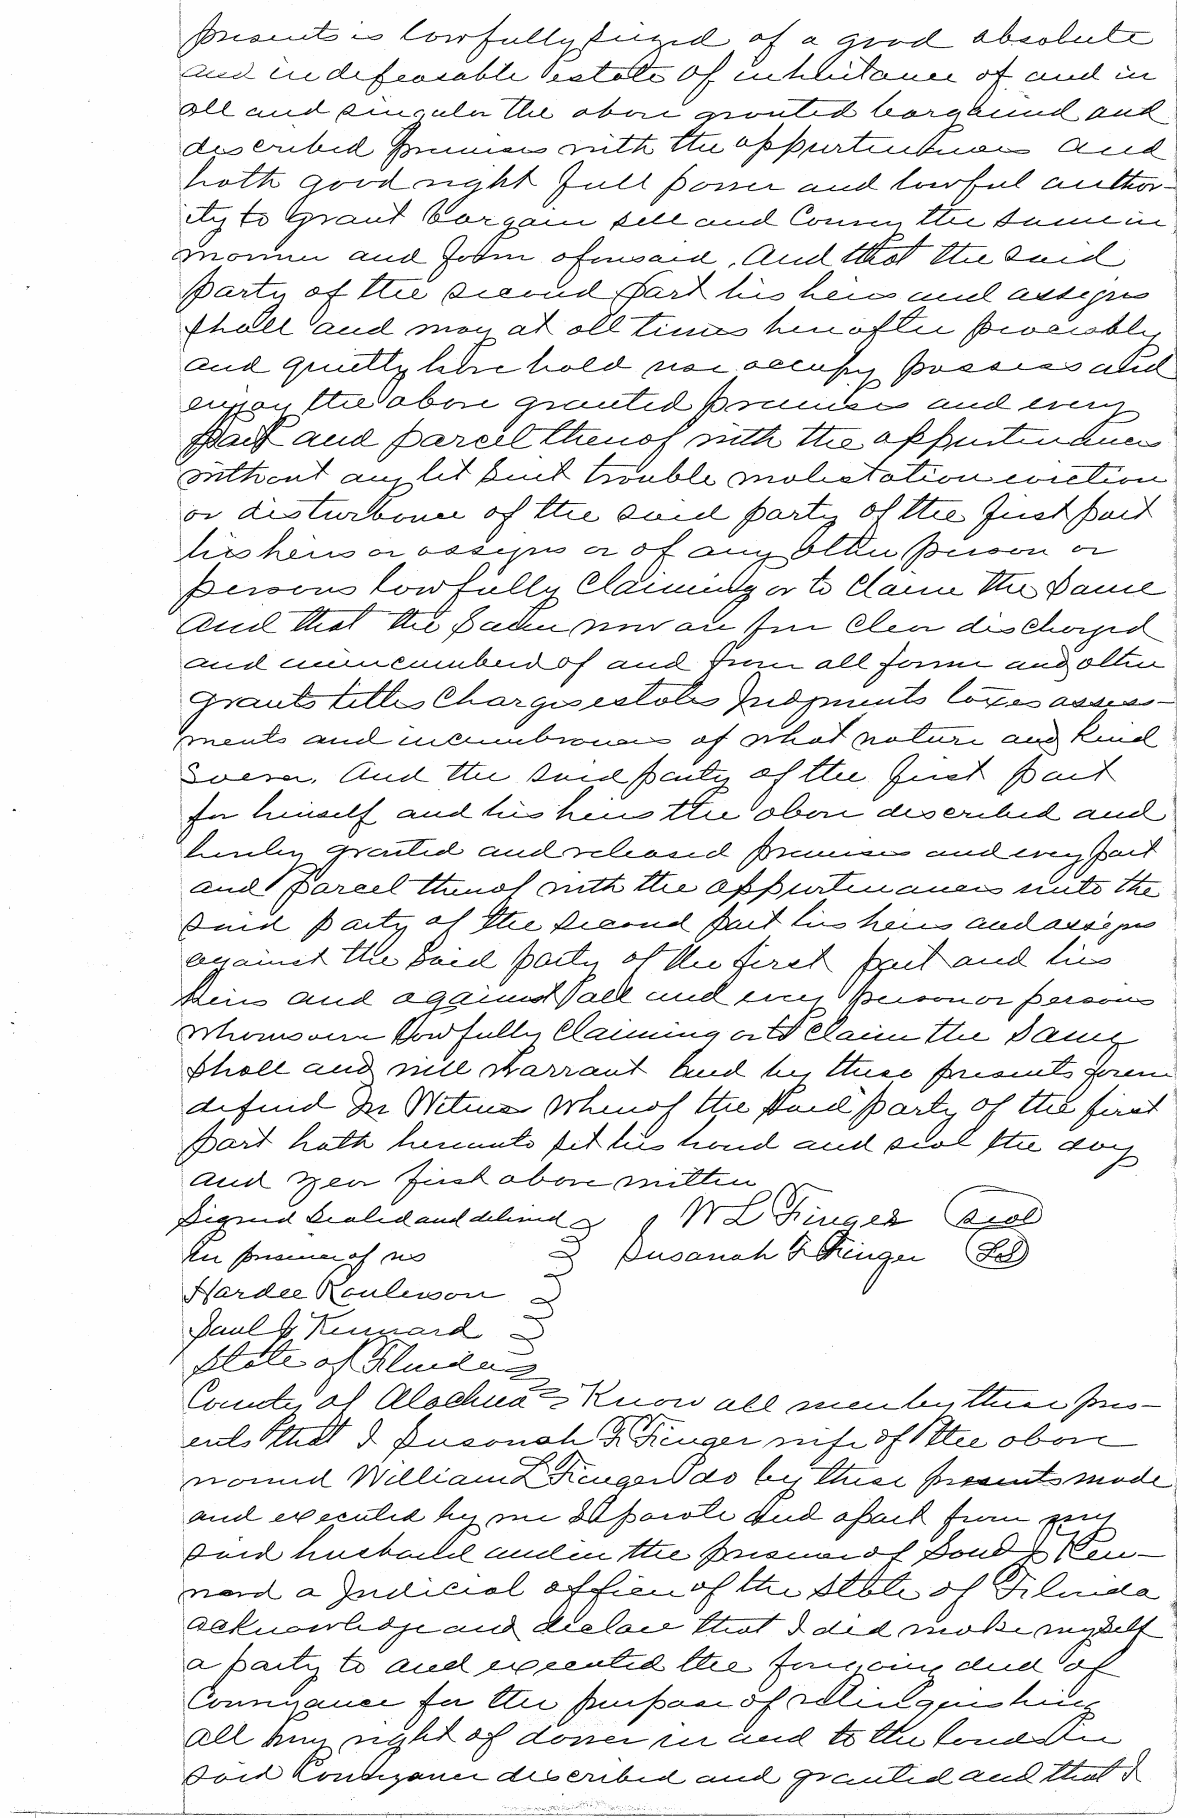 presents is lawfully siezed of a good absolute
and indefeasable estate of inheritance of and in
all and singular the above granted bargained and
described premises with the appurtenances and
hath good right full power and lawful author-
ity to grant bargain sell and Convey the same in
manner and form aforesaid. And that the said
party of the second part his heirs and assigns
shall and may at all times hereafter peaceably
and quietly have hold use occupy possess and
enjoy the above granted premises and every
part and parcel thereof with the appurtenances
without any let suit trouble molestation eviction
or disturbance of the said party of the first part
his heirs or assigns or of any other person or
persons lawfully Claiming or to Claim the Same
And that the Same now are free Clear discharged
and unincumberd of and from all former and other
grants titles Charges estates Judgments taxes assess-
ments and incumbrances of what nature and Kind
soever. And the said party of the first part
for himself and his heirs the above described and
hereby granted and released premises and every part
and parcel thereof with the appurtenances unto the
said party of the second part his heirs and assigns
against the said party of the first part and his
heirs and against all and every person or persons
whomsoever lawfully Claiming or to Claim the Same
shall and will warrant and by these presents forever
defend In Witness Whereof the said party of the first
part hath hereunto set his hand and seal the day
and year first above written
Signed Sealed and delivered W L Finger Seal
In presence of us Susanah F Finger LS
Hardee Raulerson
Paul J Kennard
State of Florida
County of Alachua Know all men by these pres-
ents that I Susanah F. Finger wife of the above
named William L Finger do by these presents made
and executed by me separate and apart from my
said husband and in the presence of Saul J Ken-
nard a Judicial officer of the State of Florida
acknowledge and declare that I did make myself
a party to and executed the foregoing deed of
Conveyance for the purpose of relinquishing
all my right of dower in and to the lands in
said Conveyance described and granted and that I